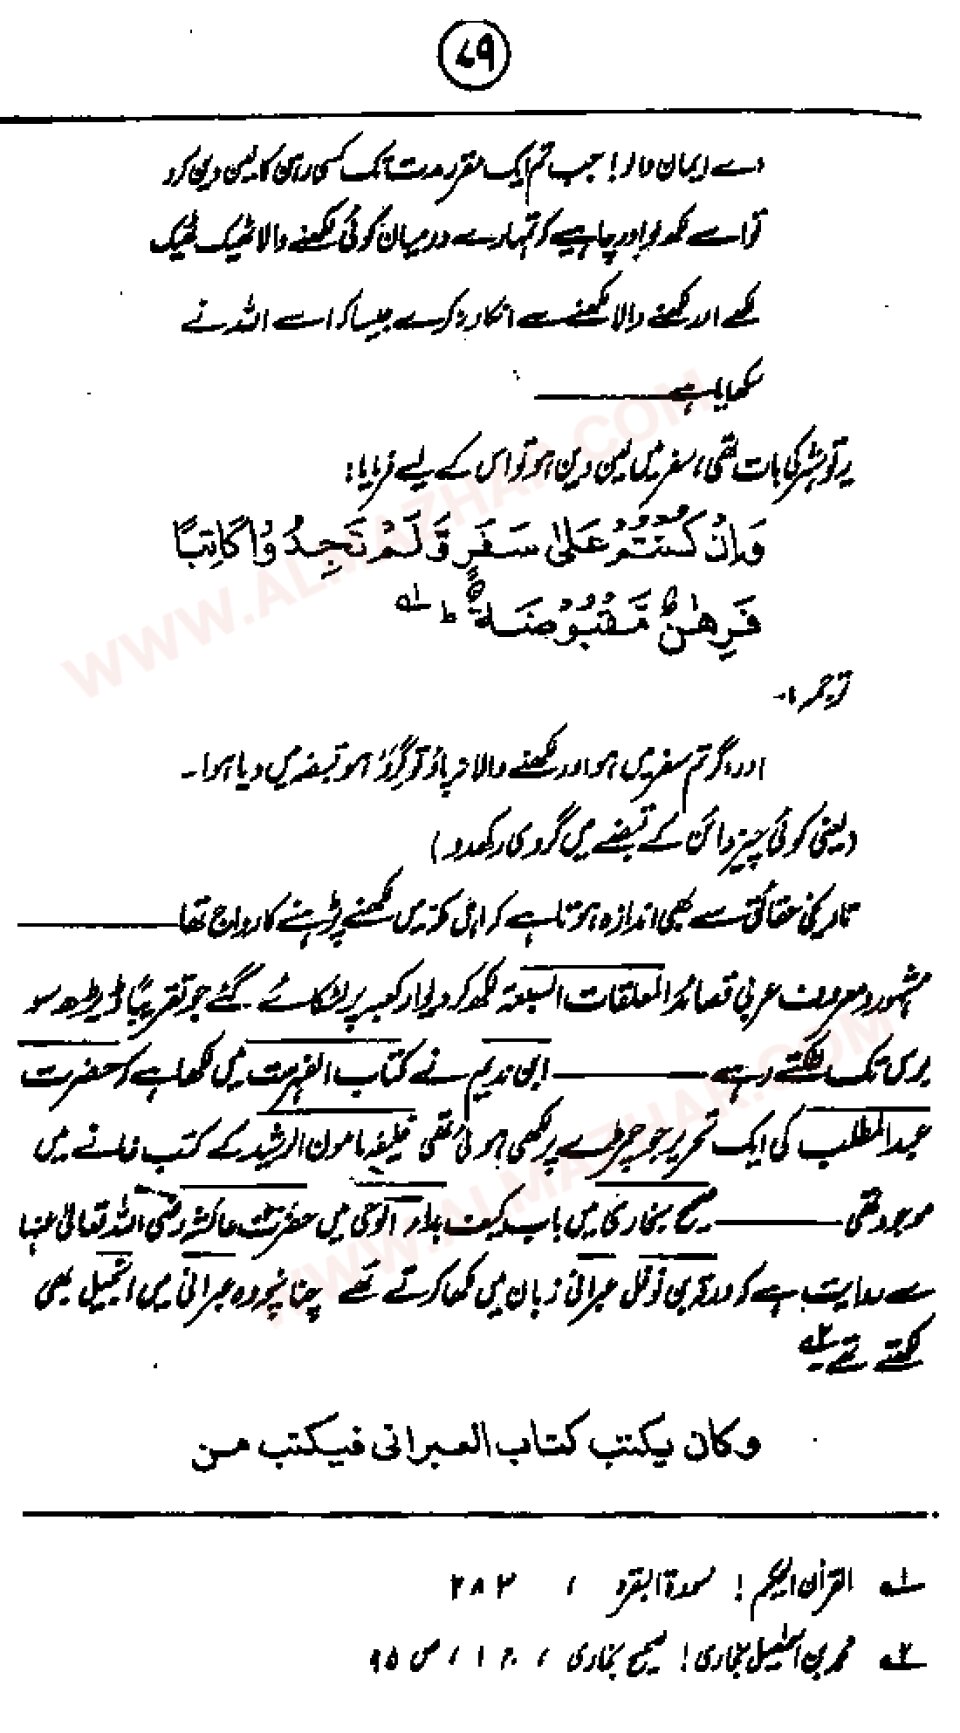 ۷۹
اے ایمان والو! جب تم ایک مقررمدت تک کسی دین کا لین دین کرو
تو اسے لکھ لو اور چاہیے کہ تمہارے درمیان کوئی لکھنے والا ٹھیک ٹھیک
لکھے اور لکھنے والا لکھنے سے انکار نہ کرے جیسا کہ اسے اللہ نے
سکھایا ہے
یہ تو شہر کی بات تھی، سفر میں لین دین ہو تو اس کے لیے فرمایا:
وَاِنْ كُنْتُمْ عَلىٰ سَفَرٍ وَّلَمْ تَجِدُوْا كَاتِبًا
فَرِهٰنٌ مَّقْبُوْضَةٌ ط ۱؎
ترجمہ :-
اور اگر تم سفر میں ہو اور لکھنے والا نہ پاؤ تو گِرَو ہو قبضہ میں دیا ہوا۔
(یعنی کوئی چیز دائن کے قبضے میں گروی رکھدو)
تاریخی حقائق سے بھی اندازہ ہوتا ہے کہ اہل مکہ میں لکھنے پڑھنے کا رواج تھا
مشہور و معروف عربی قصائد المعلقات السبعۃ لکھ کر دیوار کعبہ پر لٹکائے گئے جو تقریباً ڈیڑھ سو
برس تک لٹکتے رہے ابن ندیم نے کتاب الفہرست میں لکھا ہے کہ حضرت
عبدالمطلب کی ایک تحریر جو چمڑے پر لکھی ہوئی تھی خلیفہ مامون الرشید کے کتب خانے میں
موجود تھی صحیح بخاری میں باب کیف بداء الوحی میں حضرت عائشہ رضی اللہ تعالیٰ عنہا
سے روایت ہے کہ ورقہ بن نوفل عبرانی زبان میں لکھا کرتے تھے چنانچہ وہ عبرانی میں انجیل بھی
لکھتے تھے ۲؎
وكان يكتب كتاب العبرانى فيكتب من
۱؎ القرآن الحکیم! سورۃ البقرہ ، ۲۸۳
۲؎ محمد بن اسمٰعیل بخاری! صحیح بخاری ، ج ۱ ، ص ۹۵
WWW.ALMAZHAR.COM
WWW.ALMAZHAR.COM